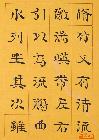 脩竹又有清流
激湍暎帶左右
引以為流觴曲
水列坐其次雖